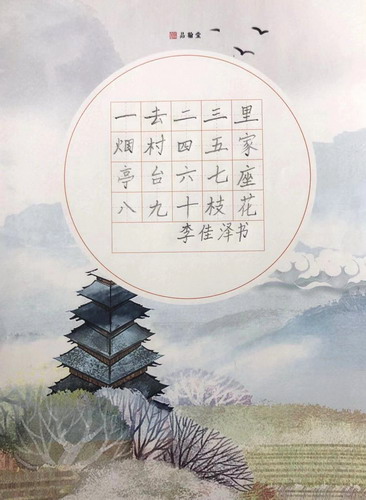 品翰堂
一去二三里
烟村四五家
亭台六七座
八九十枝花
李佳泽书